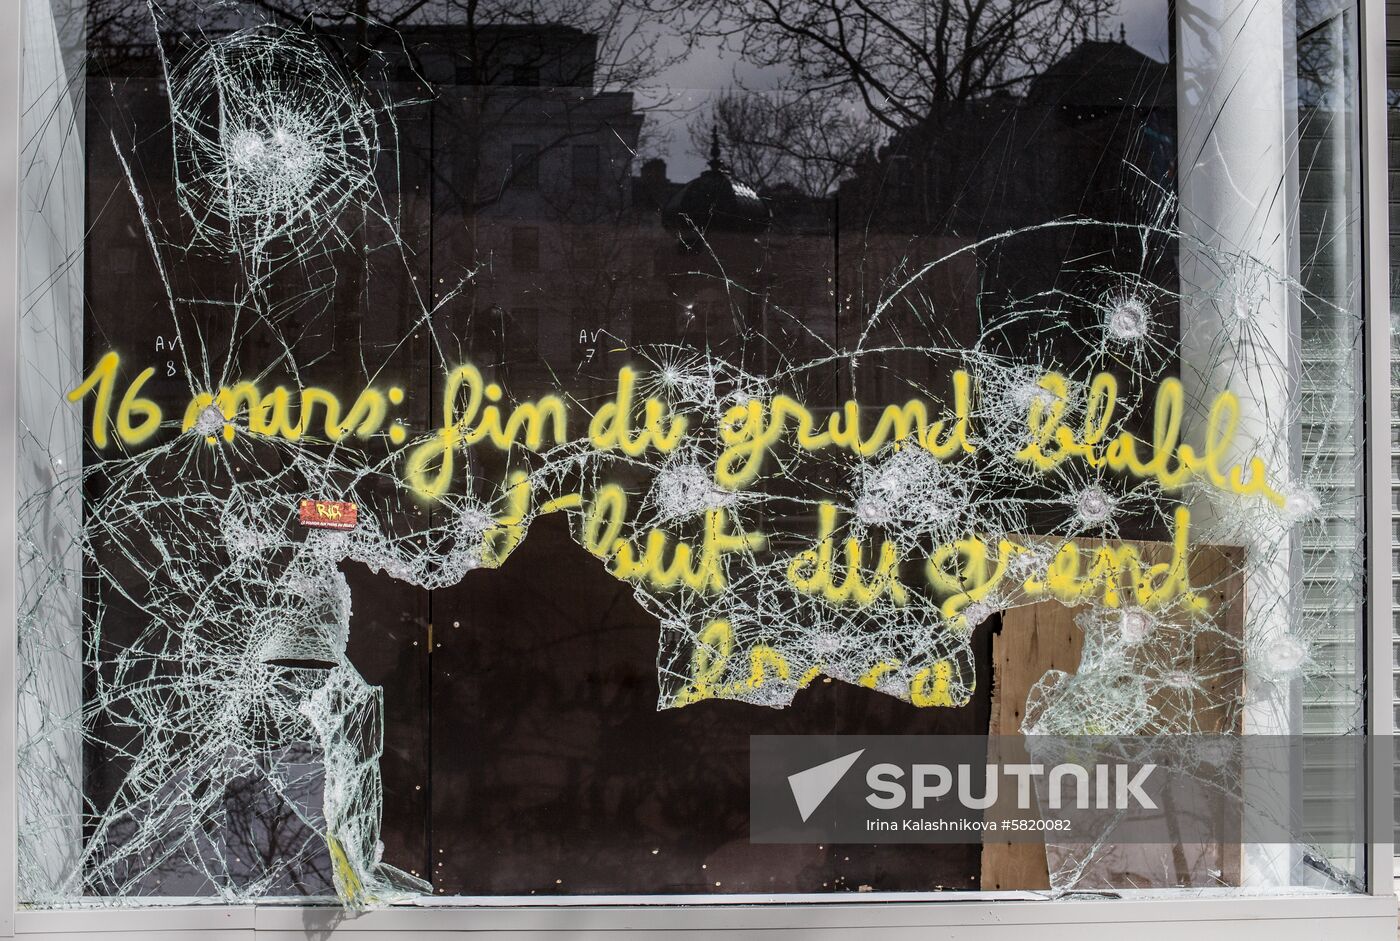 AV
8
AV
7
16 mars: fin du grand blabla
d but du grend
RIC
SPUTNIK
Irina Kalashnikova #5820082